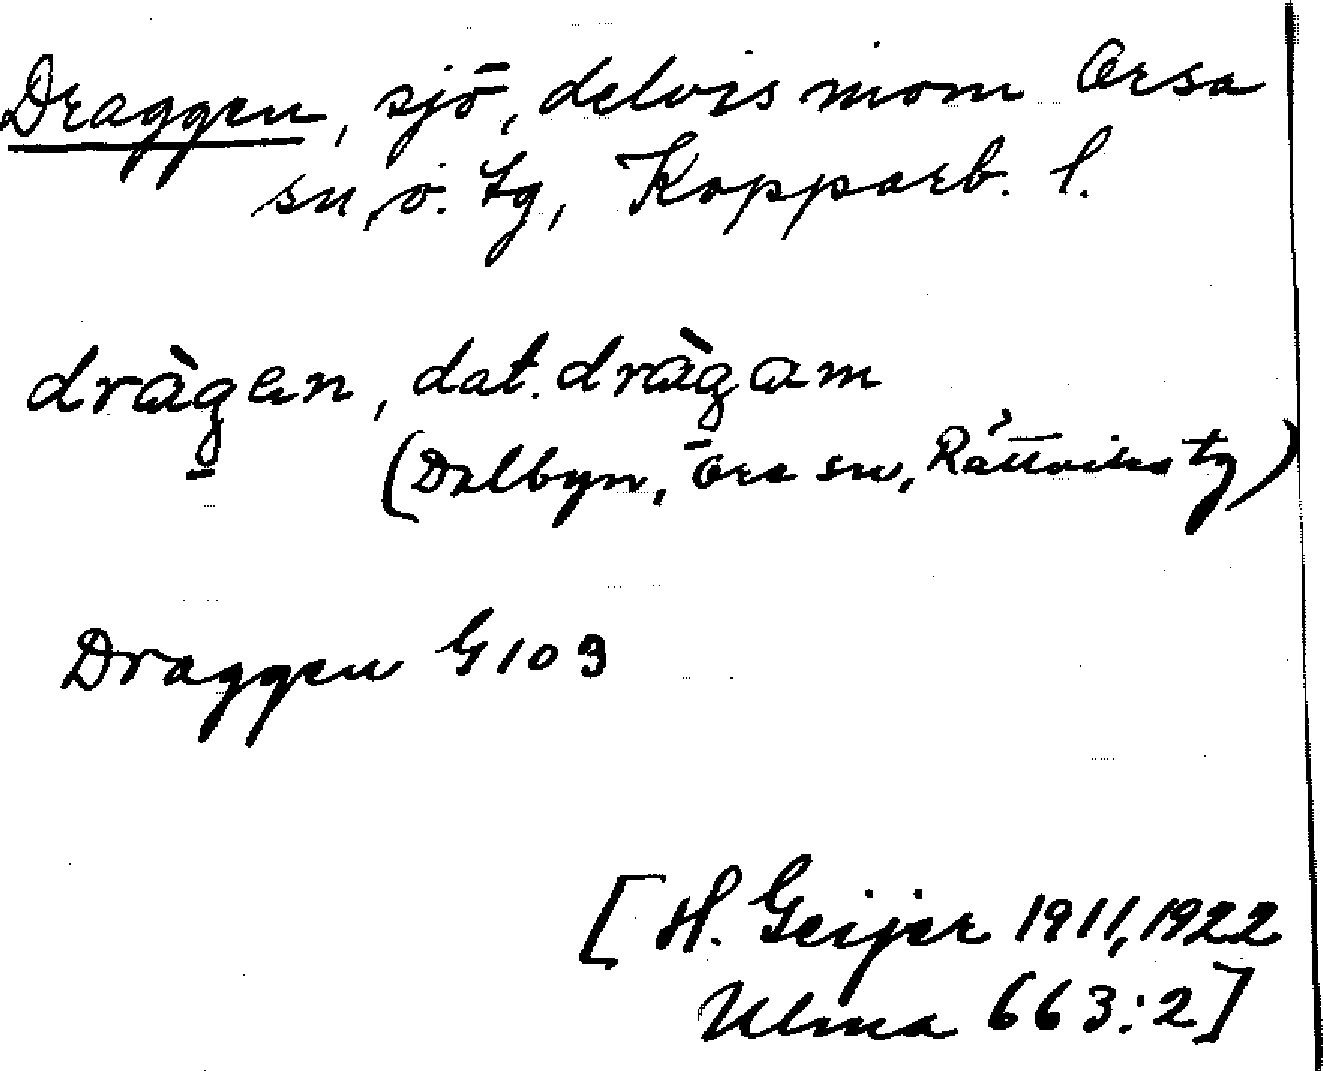 Draggen, sjö, delvis inom Orsa
sn, ö. tg, Kopparb. l.
dràgen, dat. dràgam
(Dalbyn, Ore sn, Rättviks tg)
Draggen G 103
[H. Geijer 1911, 1922
Ulma 663:2]